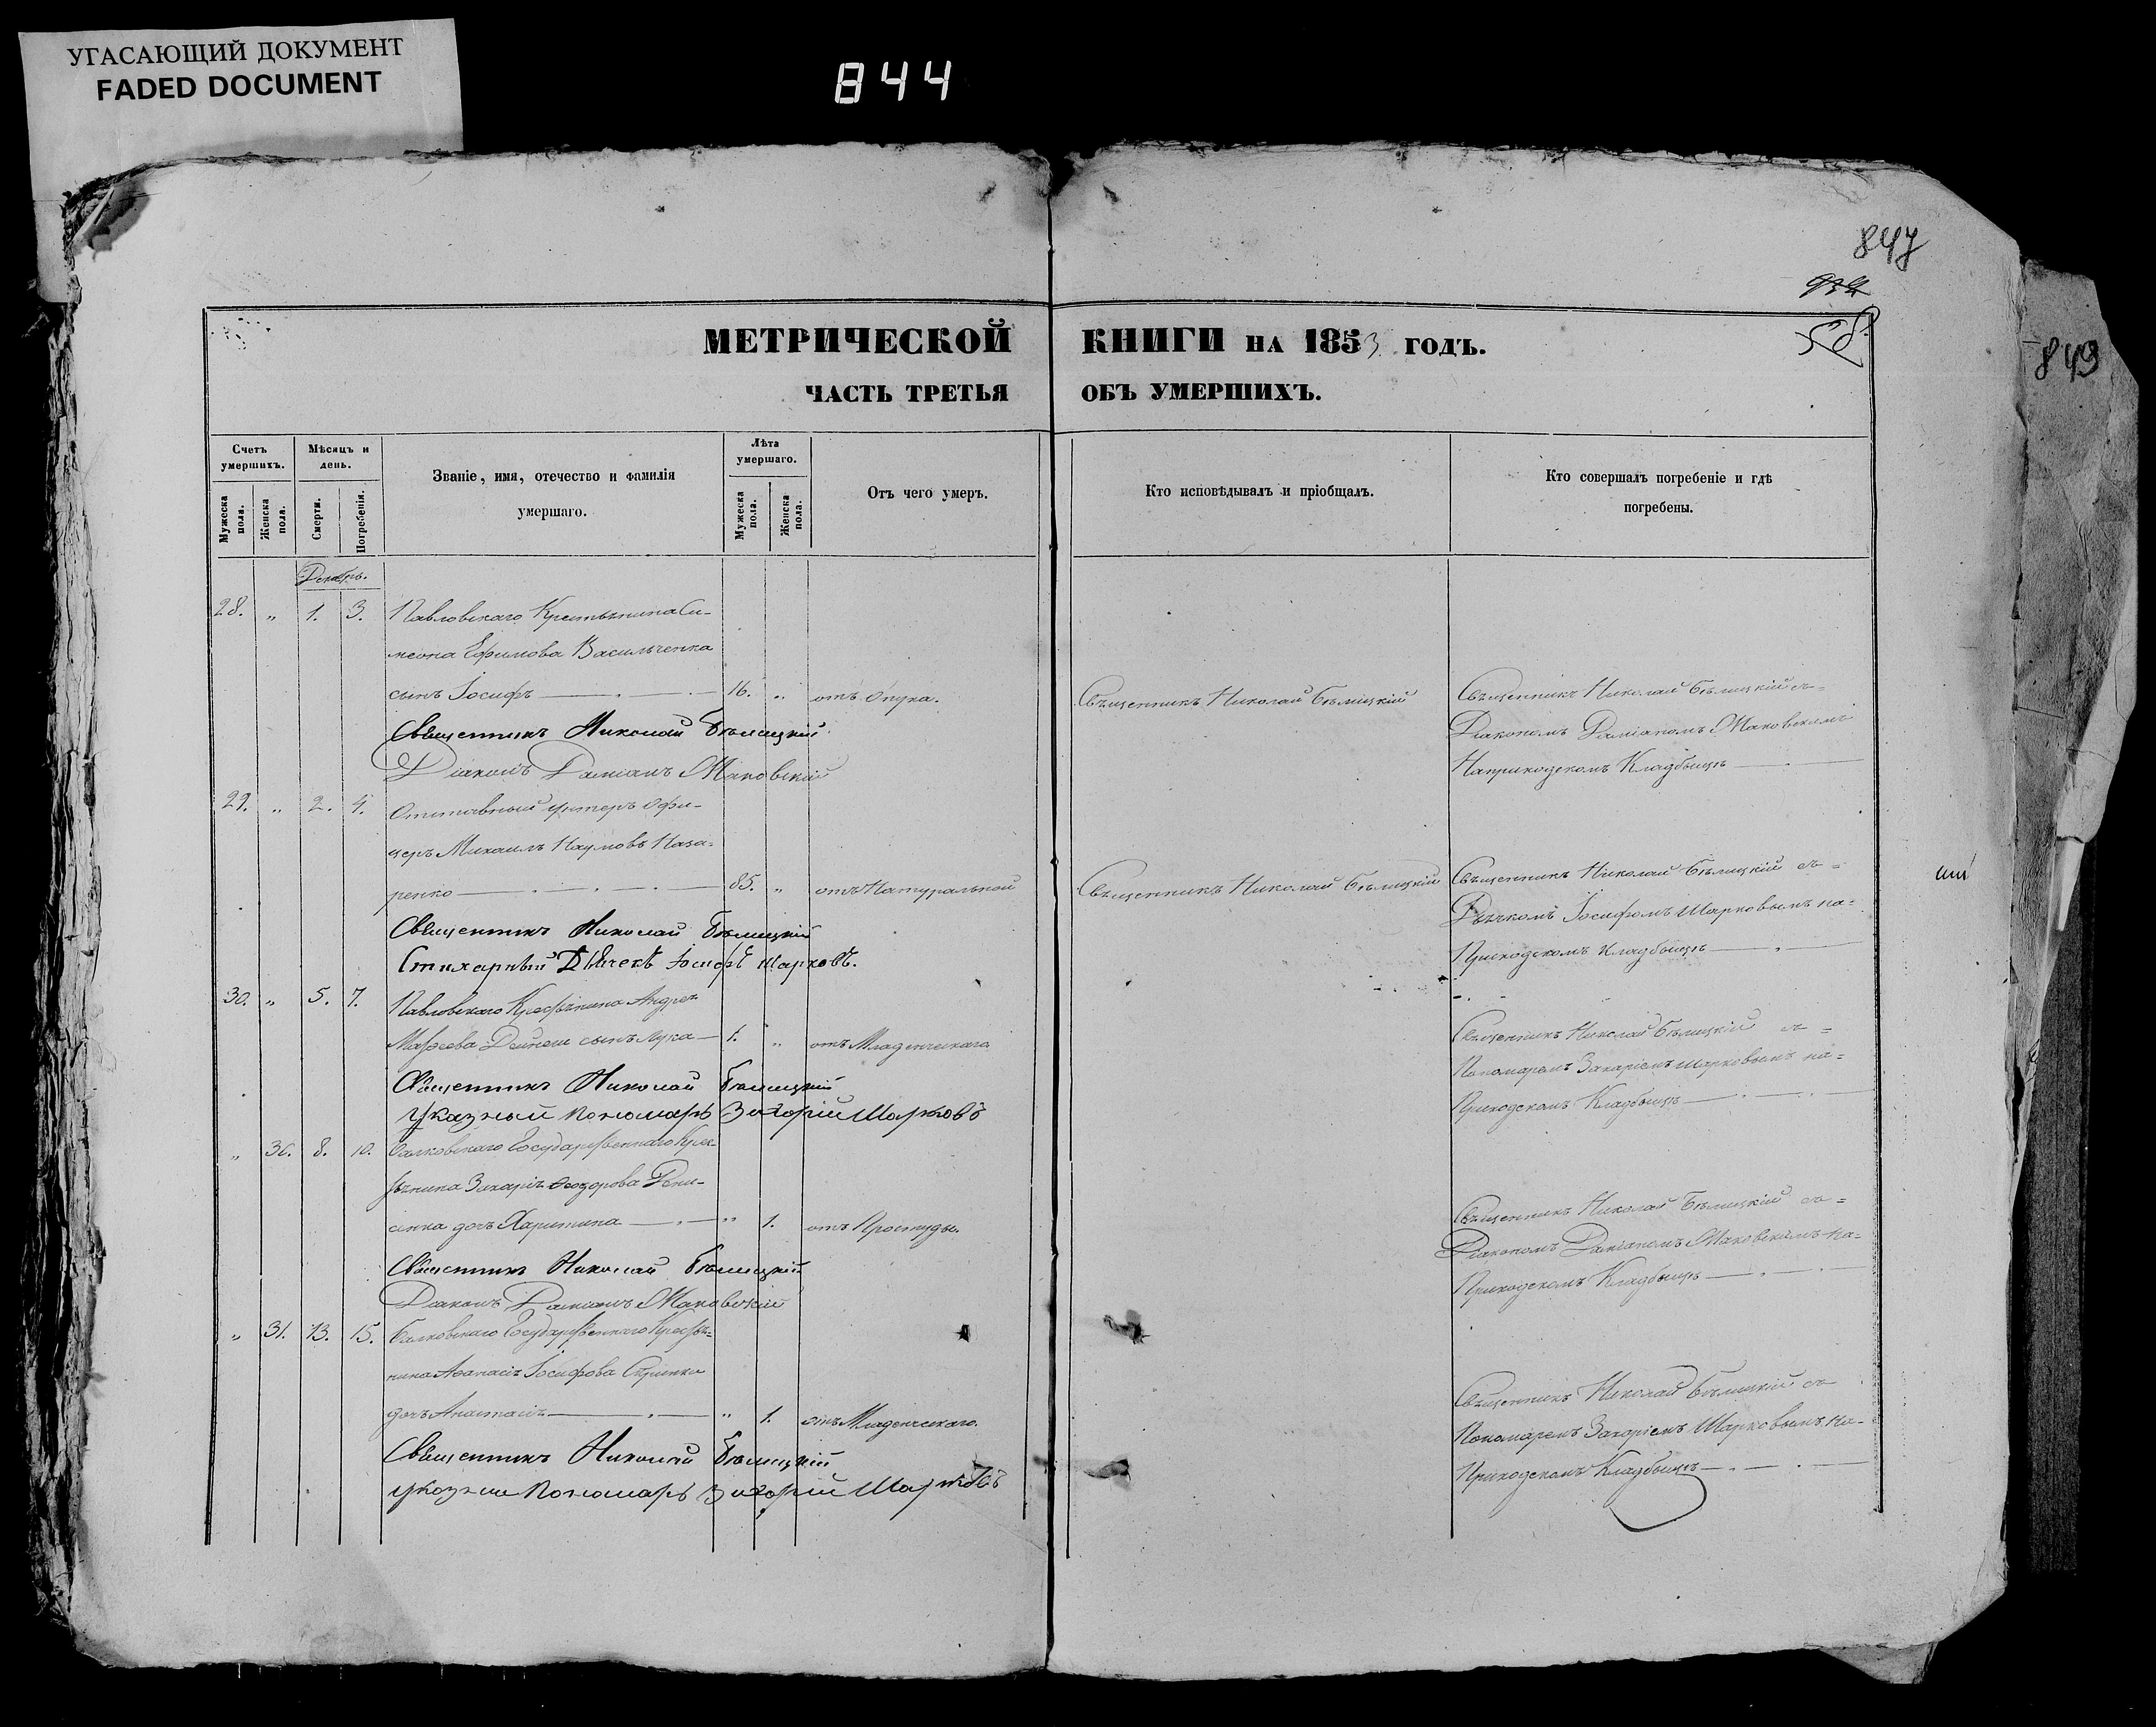 УГАСАЮЩИЙ ДОКУМЕНТ
FADED DOCUMENT
844
847
58.
849
МЕТРИЧЕСКОЙ КНИГИ НА 1853 ГОДЪ.
ЧАСТЬ ТРЕТЬЯ ОБЪ УМЕРШИХЪ.
Счетъ умершихъ.
Мужеска пола.
Женска пола.
Мѣсяцъ и день.
Смерти.
Погребенія.
Званіе, имя, отечество и фамилія умершаго.
Лѣта умершаго.
Мужеска пола.
Женска пола.
Отъ чего умеръ.
Кто исповѣдывалъ и пріобщалъ.
Кто совершалъ погребеніе и гдѣ
погребены.
Декабрь.
28. „ 1. 3. Павловскаго Крестьянина Си-
меона Ефимова Васильченка
сынъ Іосифъ 16. „ отъ Опуха. Священникъ Николай Бѣлицкій Священникъ Николай Бѣлицкій съ=
Священникъ Николай Бѣлицкій Діакономъ Даміаномъ Маковскимъ
Діаконъ Даміанъ Маковскій Наприходскомъ Кладбищѣ
29. „ 2. 4. Отставный унтеръ Офи-
церъ Михаилъ Наумовъ Наза-
ренко 85. „ отъ Натуральной Священникъ Николай Бѣлицкій Священникъ Николай Бѣлицкій съ=
Священникъ Николай Бѣлицкій Дьячкомъ Іосифомъ Шарковымъ на=
Стихарный Дьячекъ Іосифъ Шарковъ. Приходскомъ кладбищѣ
30. „ 5. 7. Павловскаго Крестьянина Андрея
Моѵсеева Дейнеги сынъ Лука 1. „ отъ Младенческаго. Священникъ Николай Бѣлицкій съ=
Священникъ Николай Бѣлицкій Пономаремъ Захаріемъ Шарковымъ на=
Указный Пономарь Захорій Шарковъ Приходскомъ Кладбищѣ
„ 30. 8. 10. Балковскаго Государственнаго Крес-
тьянина Захарія Ѳеодорова Дени-
сенка дочь Харитина „ 1. отъ Простуды. Священникъ Николай Бѣлицкій съ=
Священникъ Николай Бѣлицкій Діакономъ Даміаномъ Маковскимъ на-
Діаконъ Даміанъ Маковскій Приходскомъ Кладбищѣ
„ 31. 13. 15. Балковскаго Государственнаго Крестья-
нина Аѳанасія Іосифова Скрипки
дочь Анастасія „ 1. отъ Младенческаго. Священникъ Николай Бѣлицкій съ
Священникъ Николай Бѣлицкій Пономаремъ Захоріемъ Шарковымъ на-
Указный Пономарь Захорій Шарковъ Приходскомъ Кладбищѣ